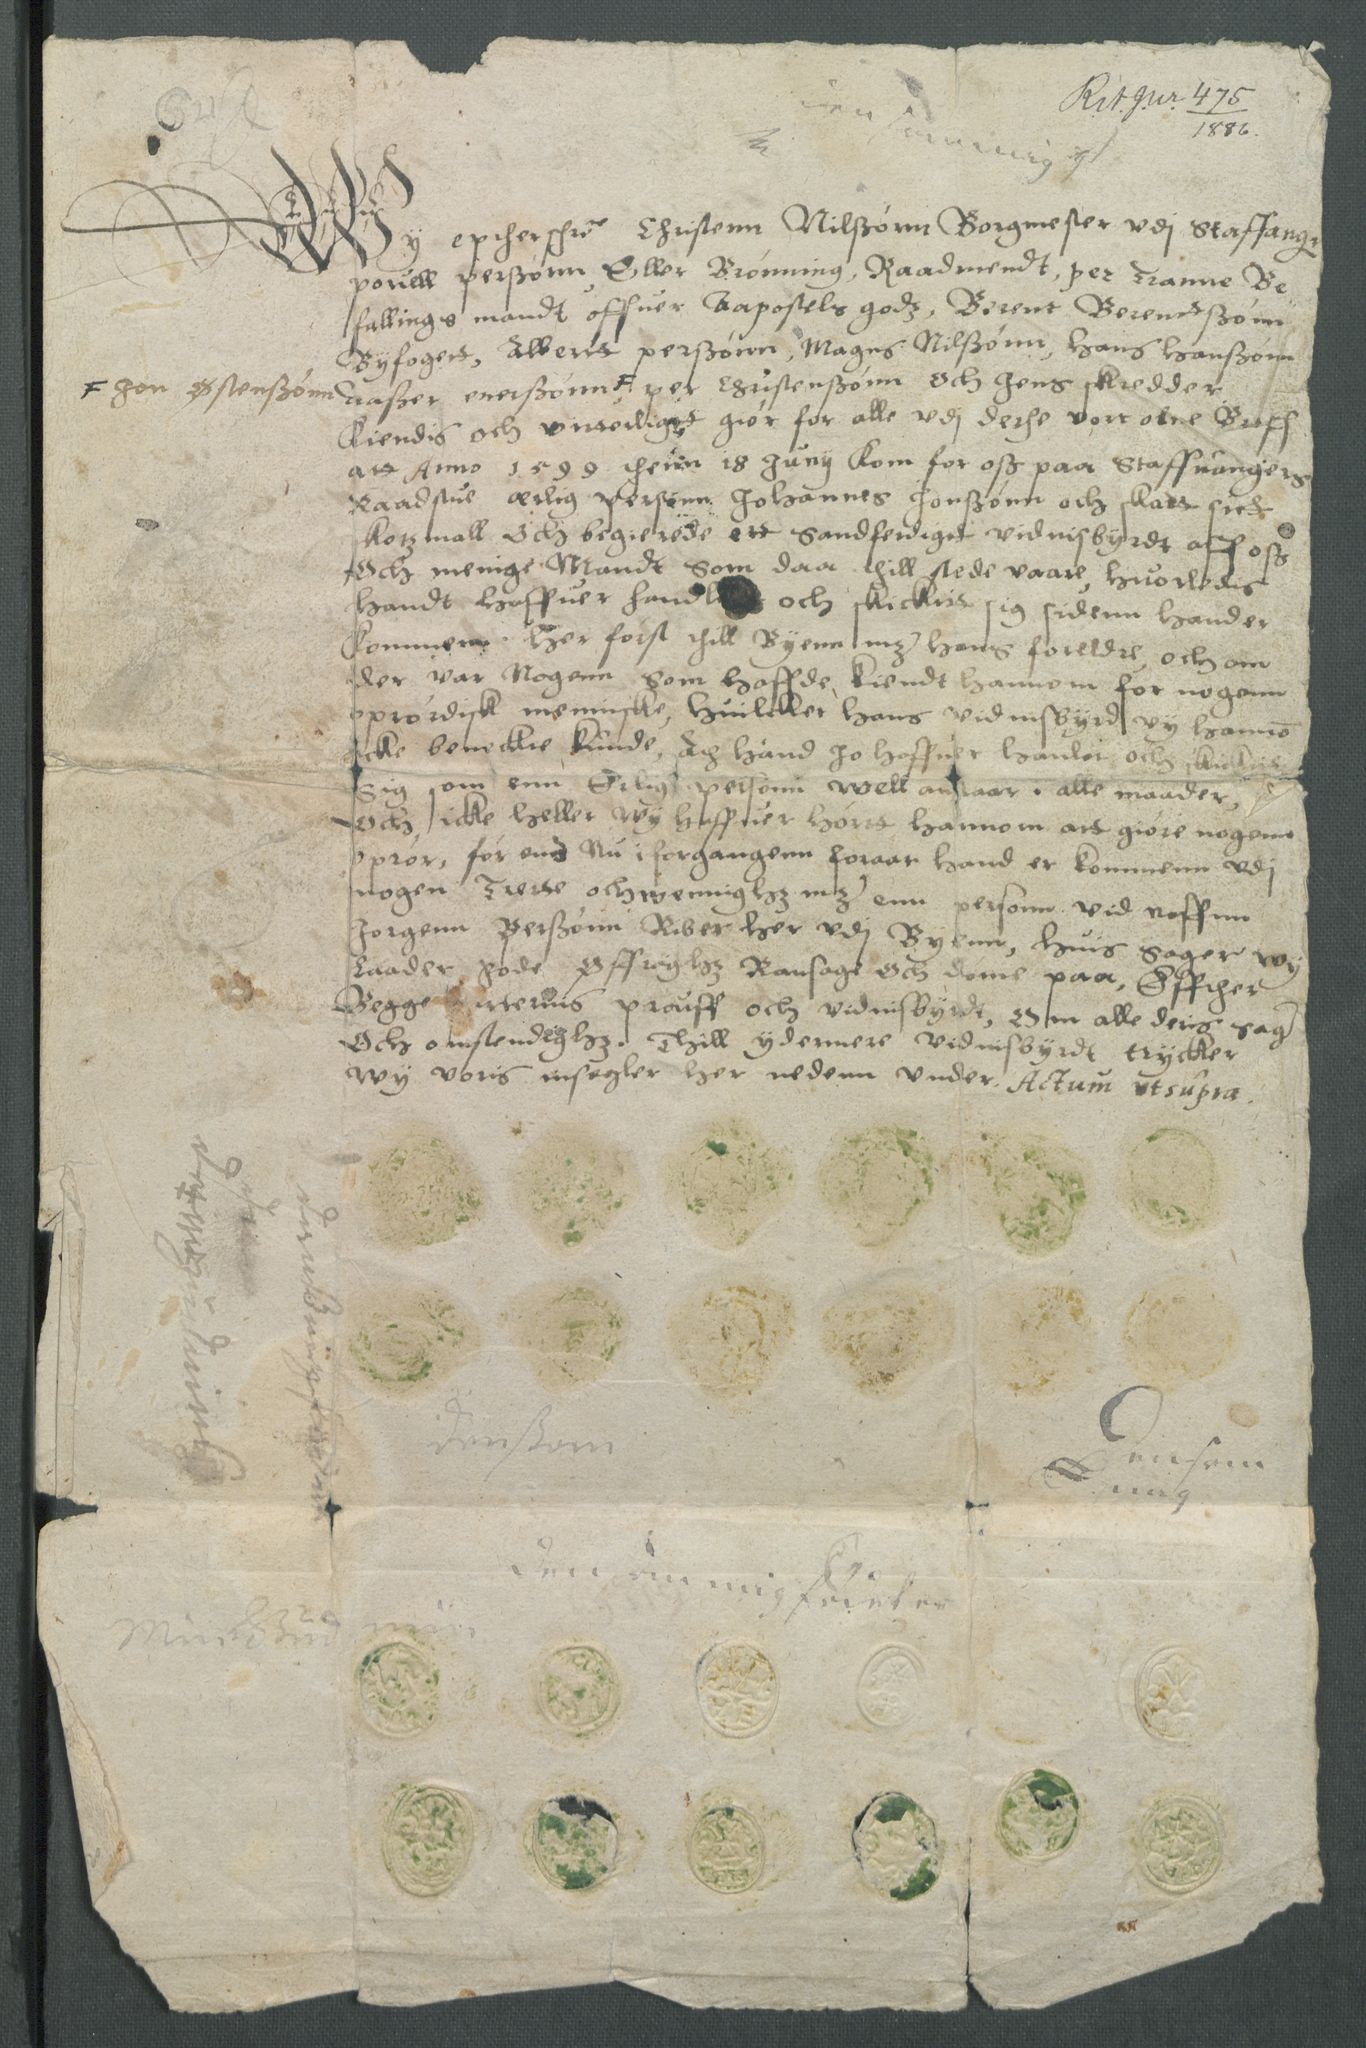 R.t. Jur. 475
1886.
Wy epther schrne Christenn Nilßönn Borgmester vdj Staffangr
pouell perßönn, Eller Brönning, Raadmendt, per Tranne Be
fallings mandt offuer Aapostels godz, Berent Berendtßönn
Byfogett, Alberit perßönn, Magns Nilßönn, Hans Hanßönn
F Jon Østenßönn
Laßer enerßönn F per Christenßönn Och Jens skredder
Kiendis och vitterligt giör for alle vdj dethe vort obne Breff
att Anno 1599 thenn 18 Junij Kom for oß paa Staffuangers
Raadstue ærlig personn Johannes Jonßönn och skatt siett
skotzmall Och begierede ett Sandferdigt vidnisbyrdt aff oß
Och menige Mandt Som daa till stede vaare, huorledis
handt haffuer handlet och skickitt sig sidenn hand er
Kommenn her först till Byenn mz hans foreldre, och om
der var Nogenn som haffde kiendt hannom for nogenn
oprördisk menniscke, huilcket hans vidnisbyrd vy hannom
icke beneckte kunde, At hand Jo haffuer handlet och skickit
sig som enn Erlig personn well anstaar i alle maader,
Och icke heller wy haffuer hörtt hannom att giöre nogenn
oprör, för end Nu i forgangenn foraar hand er kommenn vdj
nogen Trette och wennighz mz enn personn vid naffnn
Jorgenn Perßönn Riber her vdj Byenn, huis sager wy
Laader gode Øffrighz Ransage Och döme paa, Effther
Begge parternis prouff och vidnisbyrdt, Om alle deris sagr
Och omstendighz. Thill ydermere vidnisbyrdt trycker
wy voris insegler her nedenn vnder. Actum ut supra.
Denßom
Densom
mig